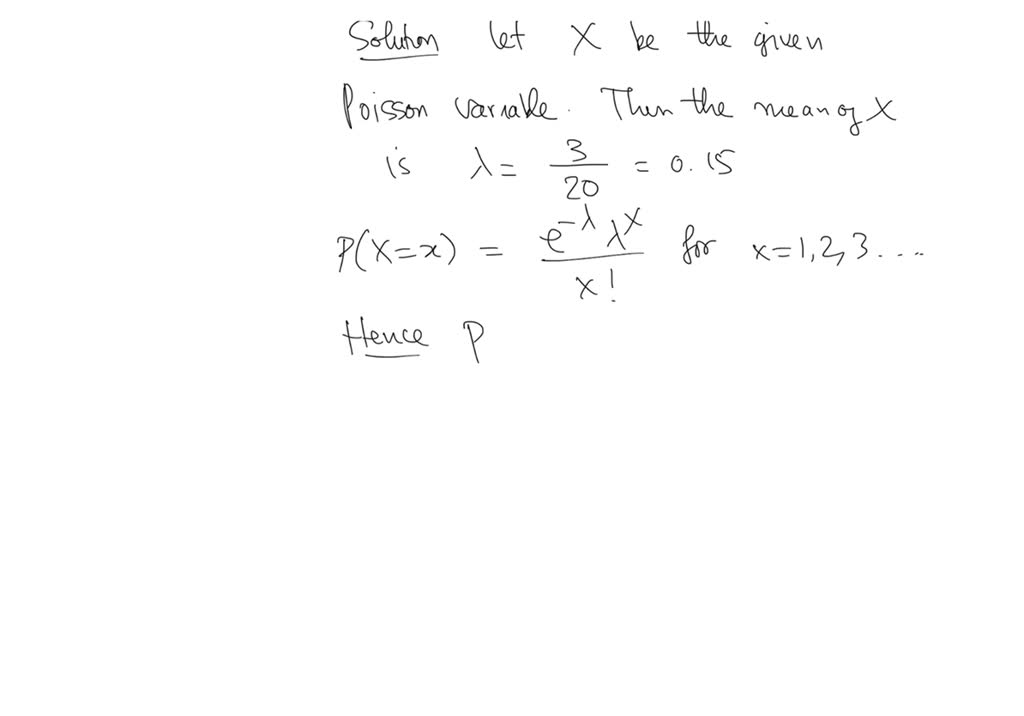 Solution let X be the given
Poisson variable. Then the mean of X
is λ = 3/20 = 0.15
P(X=x) = e^-λ λ^x / x! for x=1,2,3....
Hence P